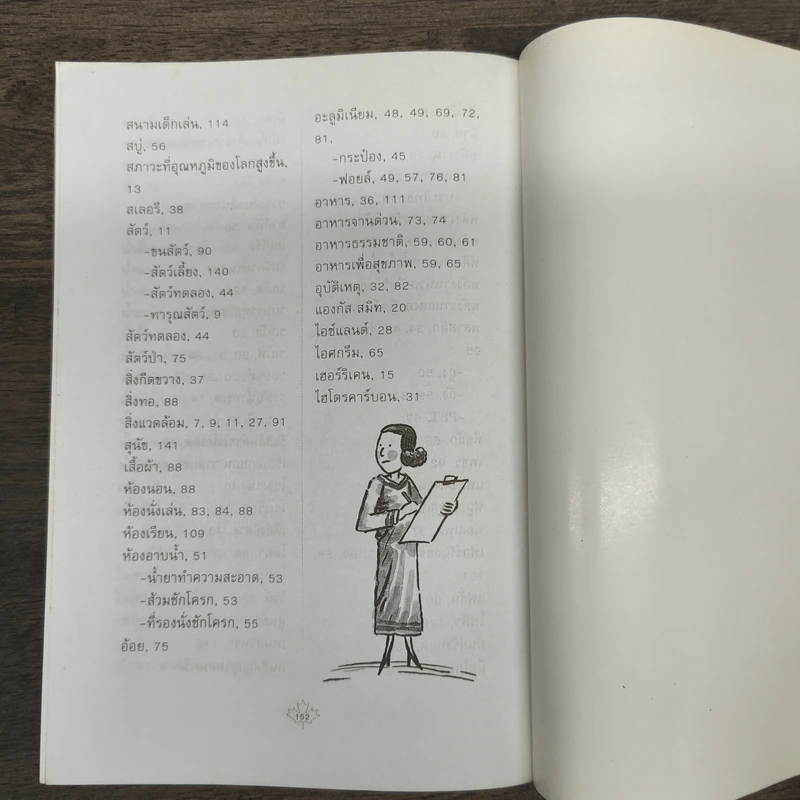 สนามเด็กเล่น, 114
สบู่, 56
สภาวะที่อุณหภูมิของโลกสูงขึ้น,
13
สเลอรี, 38
สัตว์, 11
-ขนสัตว์, 90
-สัตว์เลี้ยง, 140
-สัตว์ทดลอง, 44
-ทารุณสัตว์, 9
สัตว์ทดลอง, 44
สัตว์ป่า, 75
สิ่งกีดขวาง, 37
สิ่งทอ, 88
สิ่งแวดล้อม, 7, 9, 11, 27, 91
สุนัข, 141
เสื้อผ้า, 88
ห้องนอน, 88
ห้องนั่งเล่น, 83, 84, 88
ห้องเรียน, 109
ห้องอาบน้ำ, 51
-น้ำยาทำความสะอาด, 53
-ส้วมชักโครก, 53
-ที่รองนั่งชักโครก, 55
อ้อย, 75
อะลูมิเนียม, 48, 49, 69, 72,
81,
-กระป๋อง, 45
-ฟอยล์, 49, 57, 76, 81
อาหาร, 36, 111
อาหารจานด่วน, 73, 74
อาหารธรรมชาติ, 59, 60, 61
อาหารเพื่อสุขภาพ, 59, 65
อุบัติเหตุ, 32, 82
แองกัส สมิท, 20
ไอซ์แลนด์, 28
ไอศกรีม, 65
เฮอร์ริเคน, 15
ไฮโดรคาร์บอน, 31
152